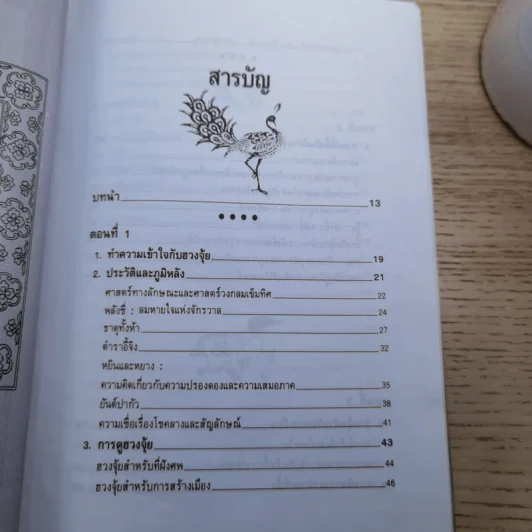 สารบัญ
บทนำ 13
ตอนที่ 1
1. ทำความเข้าใจกับฮวงจุ้ย 19
2. ประวัติและภูมิหลัง 21
ศาสตร์ทางลักษณะและศาสตร์วงกลมเข็มทิศ 22
พลังชี่ : ลมหายใจแห่งจักรวาล 24
ธาตุทั้งห้า 27
ตำราอี้จิง 32
หยินและหยาง :
ความคิดเกี่ยวกับความปรองดองและความเสมอภาค 35
ยันต์ปากัว 38
ความเชื่อเรื่องโชคลางและสัญลักษณ์ 41
3. การดูฮวงจุ้ย 43
ฮวงจุ้ยสำหรับที่ฝังศพ 44
ฮวงจุ้ยสำหรับการสร้างเมือง 46